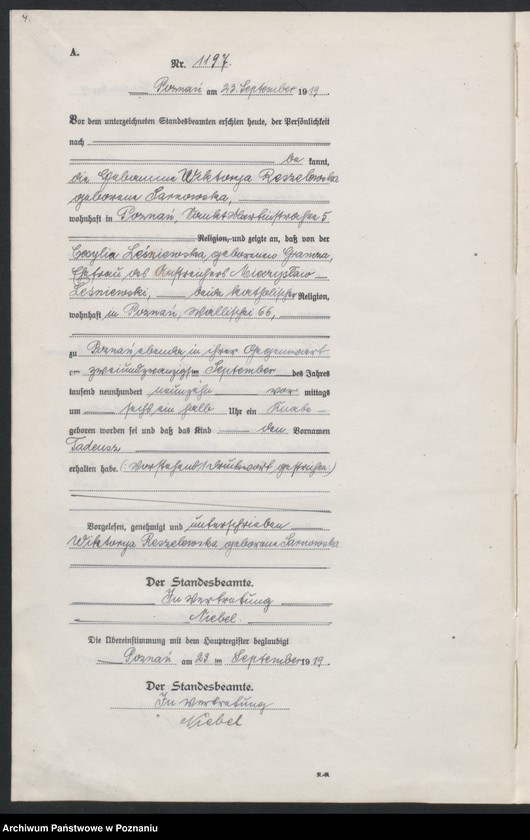 4.
A.
Nr. 1197.
Poznań am 23. September 1919.
Vor dem unterzeichneten Standesbeamten erschien heute, der Persönlichkeit
nach
be kannt,
die Hebamme Wiktorya Reszelewska
geborene Sarnowska,
wohnhaft in Poznań, Sankt Martinstrasse 5
Religion, und zeigte an, daß von der
Cecylia Leśniewska, geborenen
Ehefrau des Mieczysław
Leśniewski, beide katholischer Religion,
wohnhaft in Poznań, Wallischei 66,
zu Poznań ebenda, in ihrer Gegenwart
am zweiundzwanzigsten September des Jahres
tausend neunhundert neunzehn vor mittags
um sechs ein halb Uhr ein Knabe
geboren worden sei und daß das Kind den Vornamen
Tadeusz
erhalten habe. (Vorstehend 1 Druckwort gestrichen.)
Vorgelesen, genehmigt und unterschrieben
Wiktorya Reszelewska geborene Sarnowska
Der Standesbeamte.
In Vertretung
Niebel.
Die Übereinstimmung mit dem Hauptregister beglaubigt
Poznań am 23 ten September 1919.
Der Standesbeamte.
In Vertretung
Niebel
Archiwum Państwowe w Poznaniu